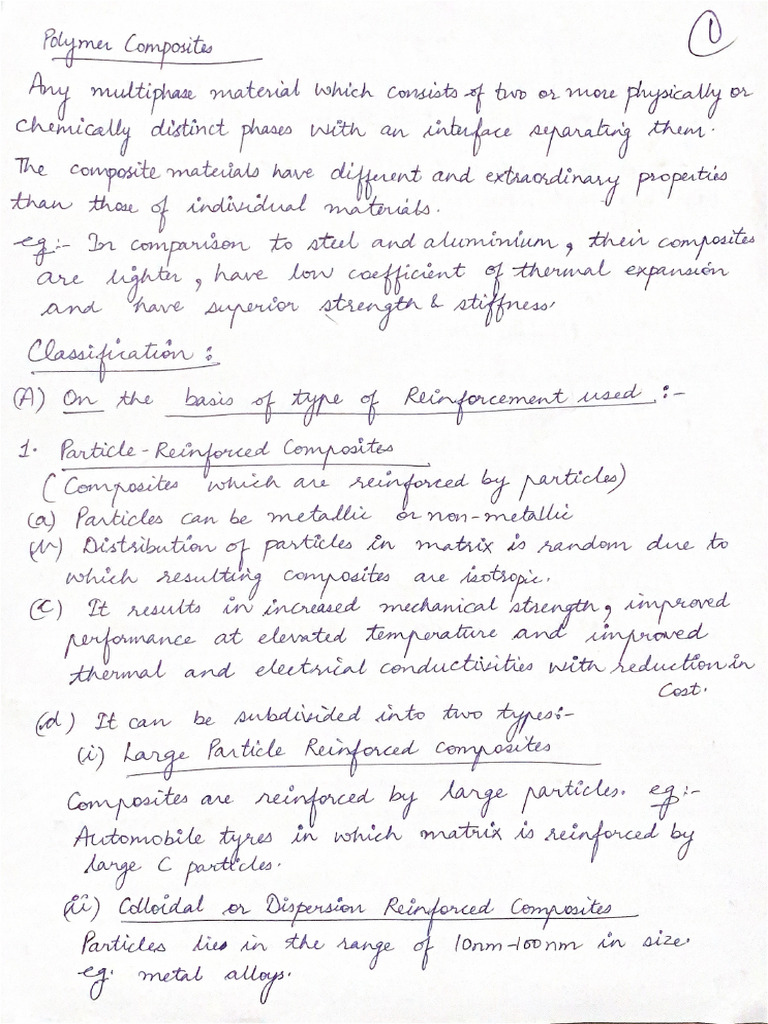 ①
Polymer Composites
Any multiphase material which consists of two or more physically or
chemically distinct phases with an interface separating them.
The composite materials have different and extraordinary properties
than those of individual materials.
eg:- In comparison to steel and aluminium, their composites
are lighter, have low coefficient of thermal expansion
and have superior strength & stiffness.
Classification :
(A) On the basis of type of Reinforcement used :-
1. Particle-Reinforced Composites
(Composites which are reinforced by particles)
(a) Particles can be metallic or non-metallic
(b) Distribution of particles in matrix is random due to
which resulting composites are isotropic.
(C) It results in increased mechanical strength, improved
performance at elevated temperature and improved
thermal and electrical conductivities with reduction in
Cost.
(d) It can be subdivided into two types:-
(i) Large Particle Reinforced Composites
Composites are reinforced by large particles. eg:-
Automobile tyres in which matrix is reinforced by
large C particles.
(ii) Colloidal or Dispersion Reinforced Composites
Particles lies in the range of 10nm-100nm in size.
eg. metal alloys.